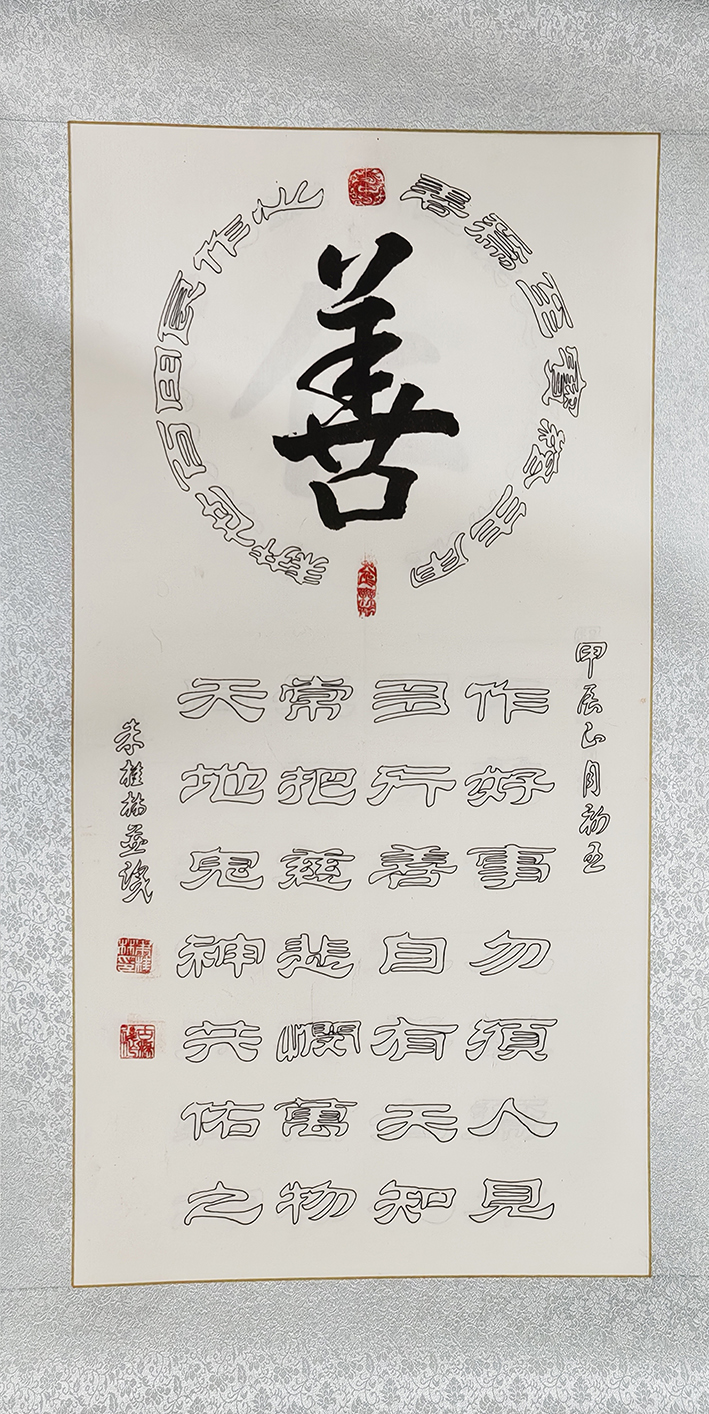 善
善為至寶終生用
心作良田百世耕
甲辰正月初五
作好事勿須人見
多行善自有天知
常把慈悲憫萬物
天地鬼神共佑之
朱桂並識